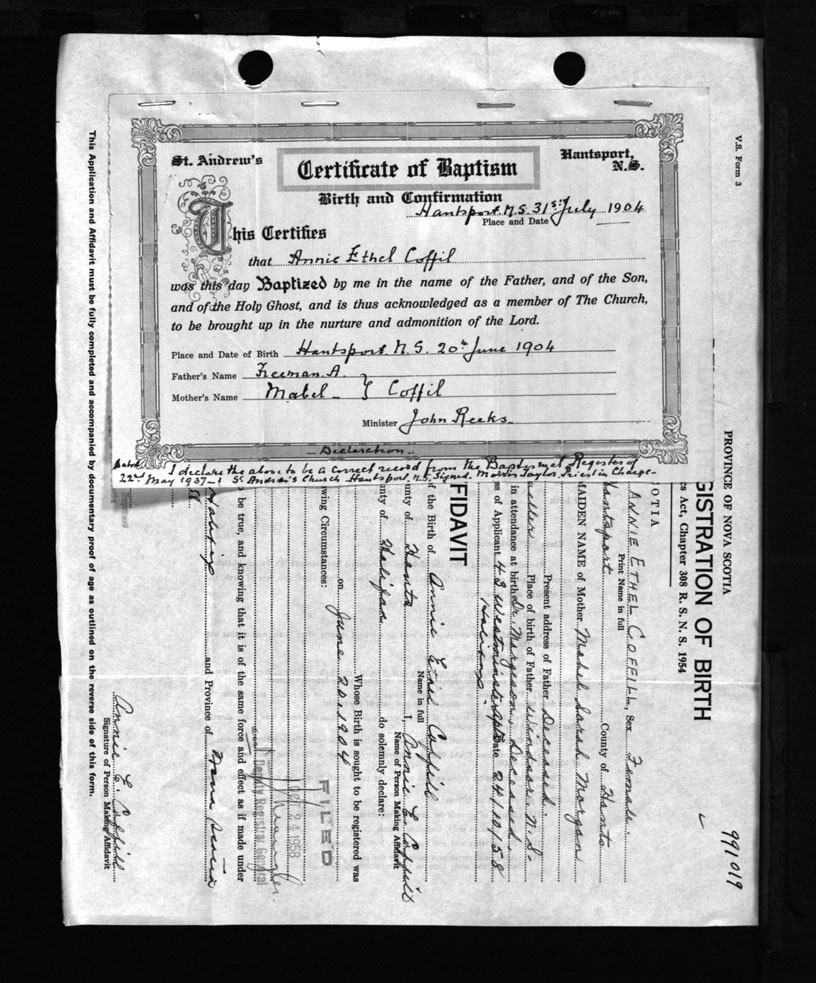 St. Andrew's
Certificate of Baptism
Hantsport,
N.S.
Birth and Confirmation
Hantsport. N.S. 31st July 1904
Place and Date
This Certifies
that Annie Ethel Coffil
was this day Baptized by me in the name of the Father, and of the Son,
and of the Holy Ghost, and is thus acknowledged as a member of The Church,
to be brought up in the nurture and admonition of the Lord.
Place and Date of Birth Hantsport. N.S. 20th June 1904
Father's Name Freeman A.
Mother's Name Mabel - } Coffil
Minister John Reeks
Declaration
Dated I declare the above to be a correct record from the Baptismal Register of
22nd May 1937 - St Andrew's Church Hantsport. N.S. Signed. Morris Taylor, Priest in Charge -
V.S. Form 3
991019
PROVINCE OF NOVA SCOTIA
GISTRATION OF BIRTH
s Act, Chapter 308 R. S. N. S. 1954
OTIA
ANNIE ETHEL COFFILL, Sex Female.
Print Name in full
Hantsport County of Hants
MAIDEN NAME of Mother Mabel Sarah Morgan
Present address of Father Deceased.
Place of birth of Father Windsor. N.S.
in attendance at birth Dr. Margeson, Deceased.
ss of Applicant 43 Westminster Apts Date 24/10/58
Halifax.
FIDAVIT
f the Birth of Annie Ethel Coffill
Name in full
ounty of Hants I, Annie E. Coffill
Name of Person Making Affidavit
unty of Halifax do solemnly declare:
Whose Birth is sought to be registered was
on June 20. 1904
wing Circumstances:
FILED
24 1958
Deputy Registrar General
be true, and knowing that it is of the same force and effect as if made under
Halifax and Province of Nova Scotia
Annie E. Coffill
Signature of Person Making Affidavit
This Application and Affidavit must be fully completed and accompanied by documentary proof of age as outlined on the reverse side of this form.